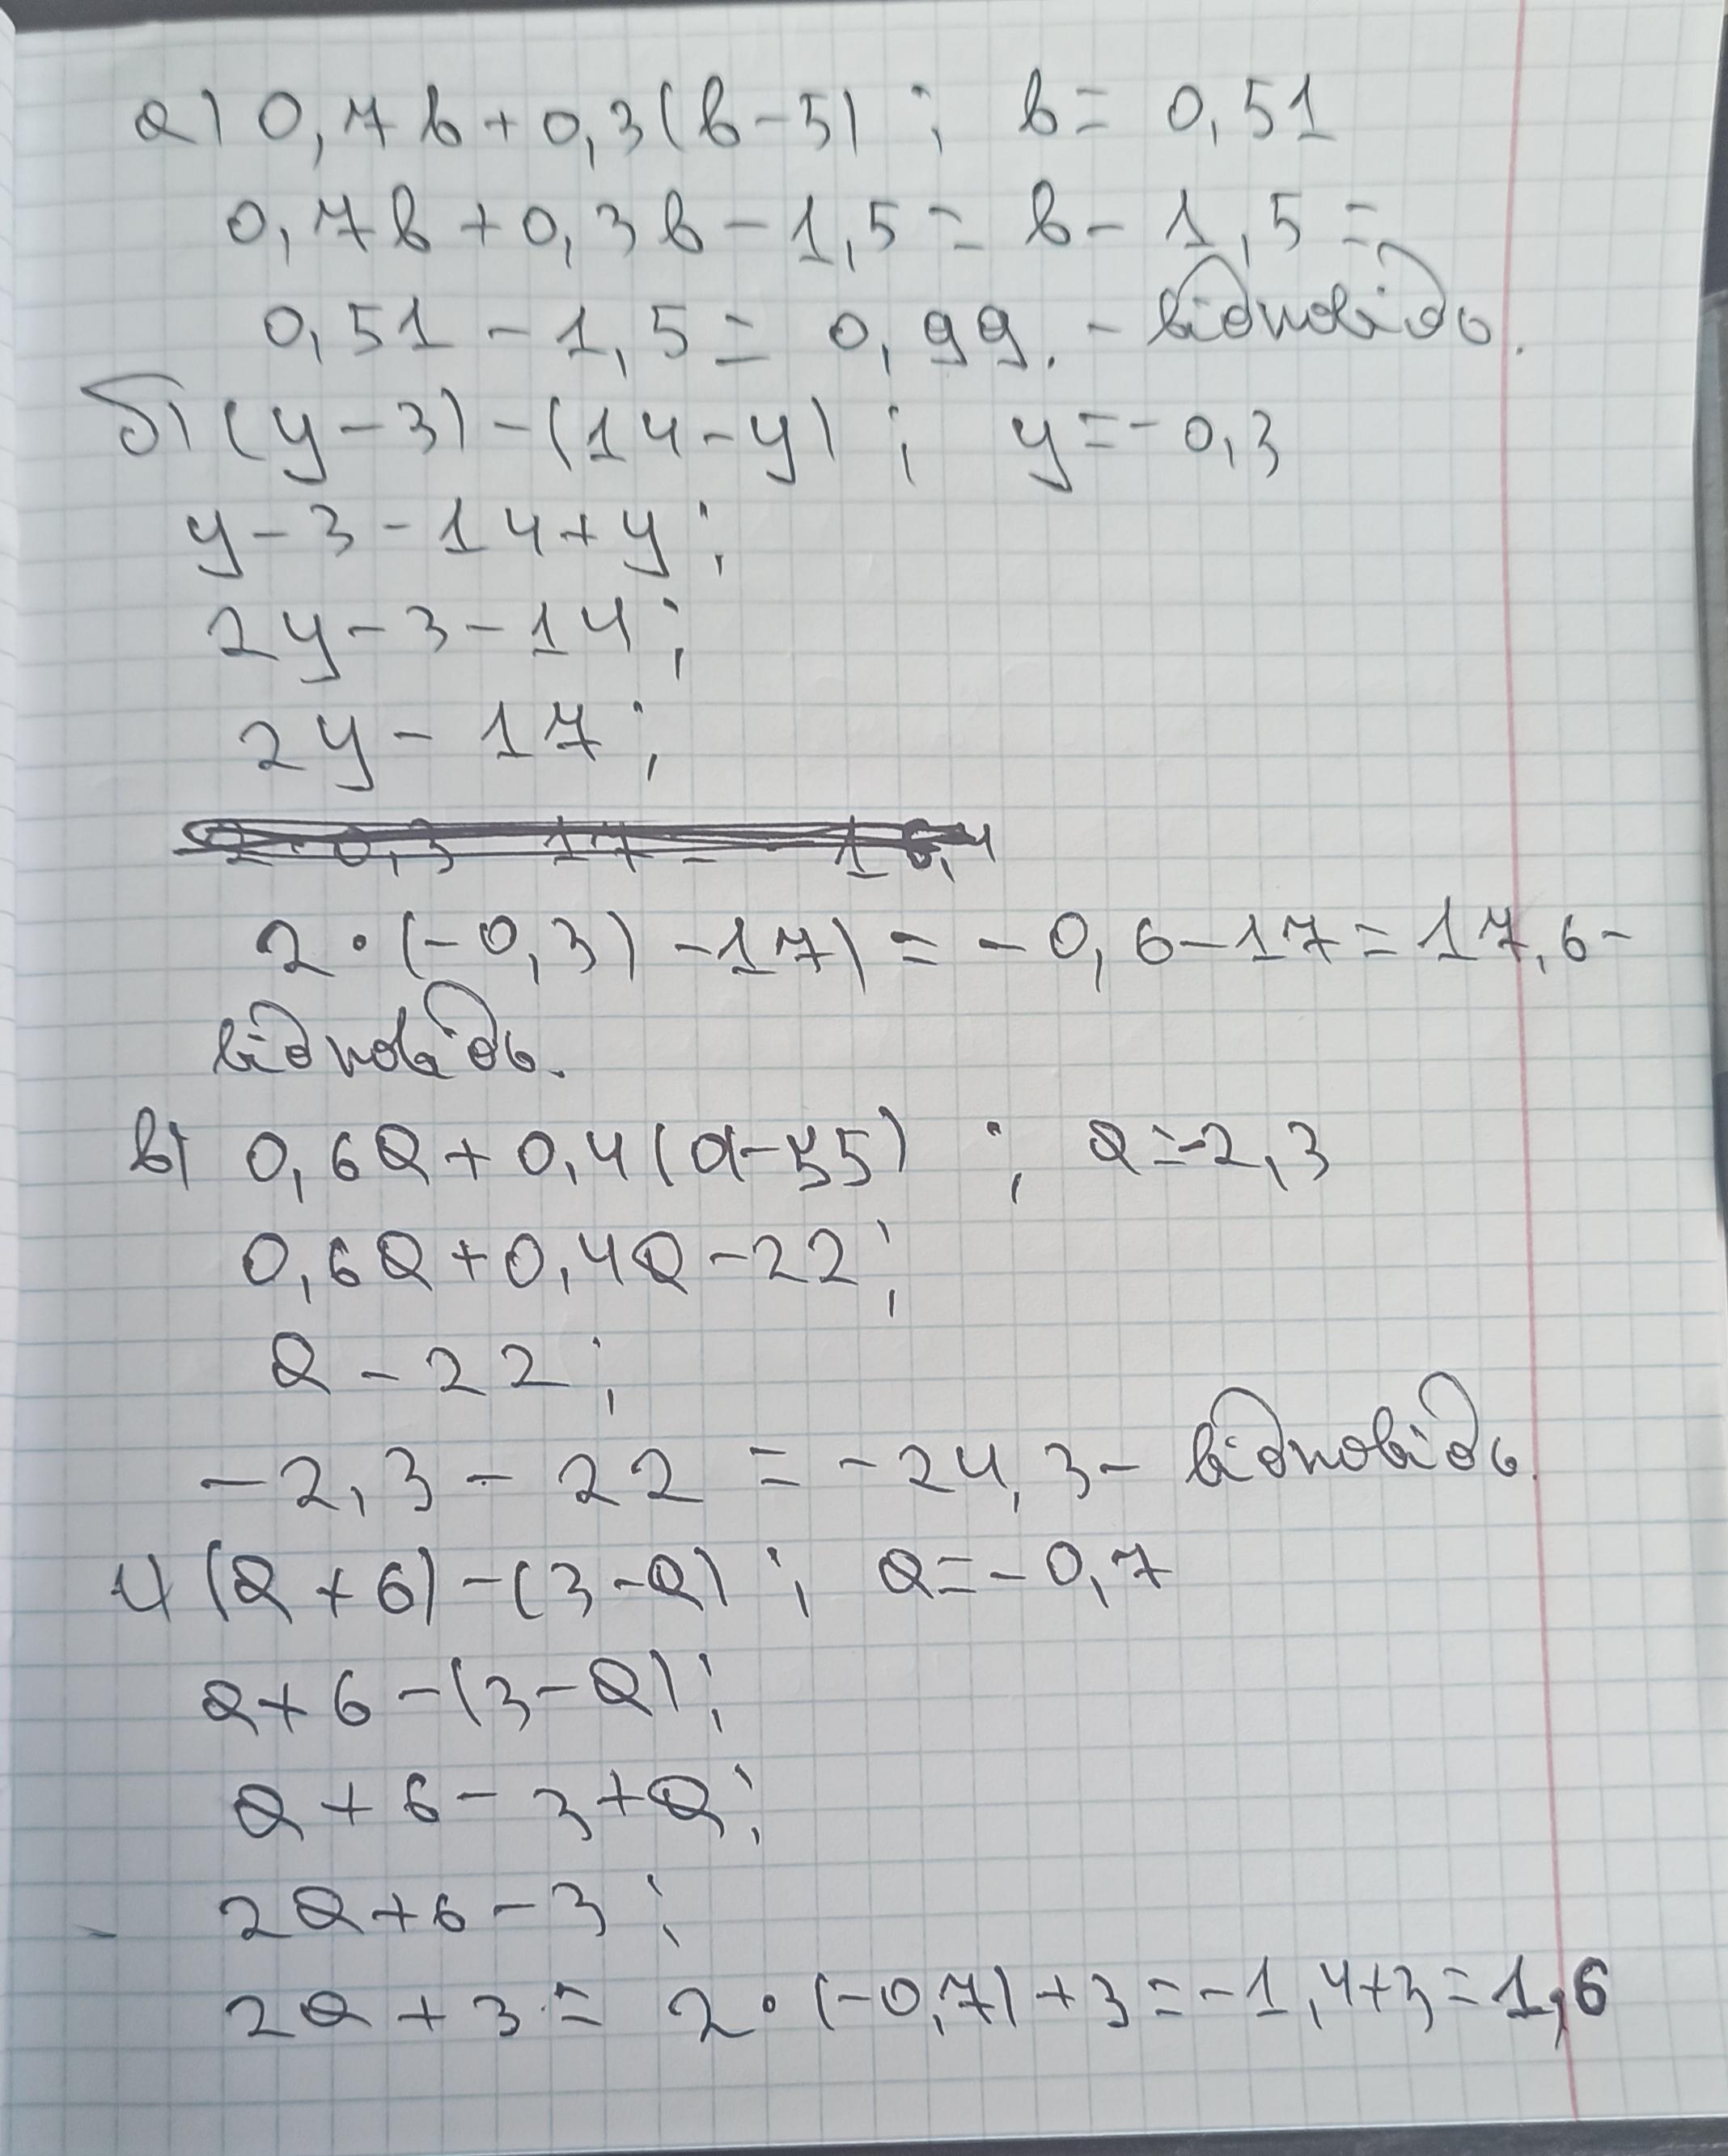 а) 0,7в+0,3(в-5) ; в= 0,51
0,7в+0,3в-1,5= в- 1,5=
0,51 - 1,5= 0,99. - відповідь.
б) (y-3)-(14-y) ; y=-0,3
y-3-14+y ;
2y-3-14 ;
2y-17 ;
2 · (-0,3) -17) = -0,6-17=17,6-
відповідь.
в) 0,6а+0,4(а-55) ; а=-2,3
0,6а+0,4а-22 ;
а-22 ;
-2,3-22 = -24,3- відповідь.
4) (а+6)-(3-а) ; а=-0,7
а+6-(3-а) ;
а+6-3+а ;
2а+6-3 ;
2а+3= 2 · (-0,7)+3=-1,4+3=1,6